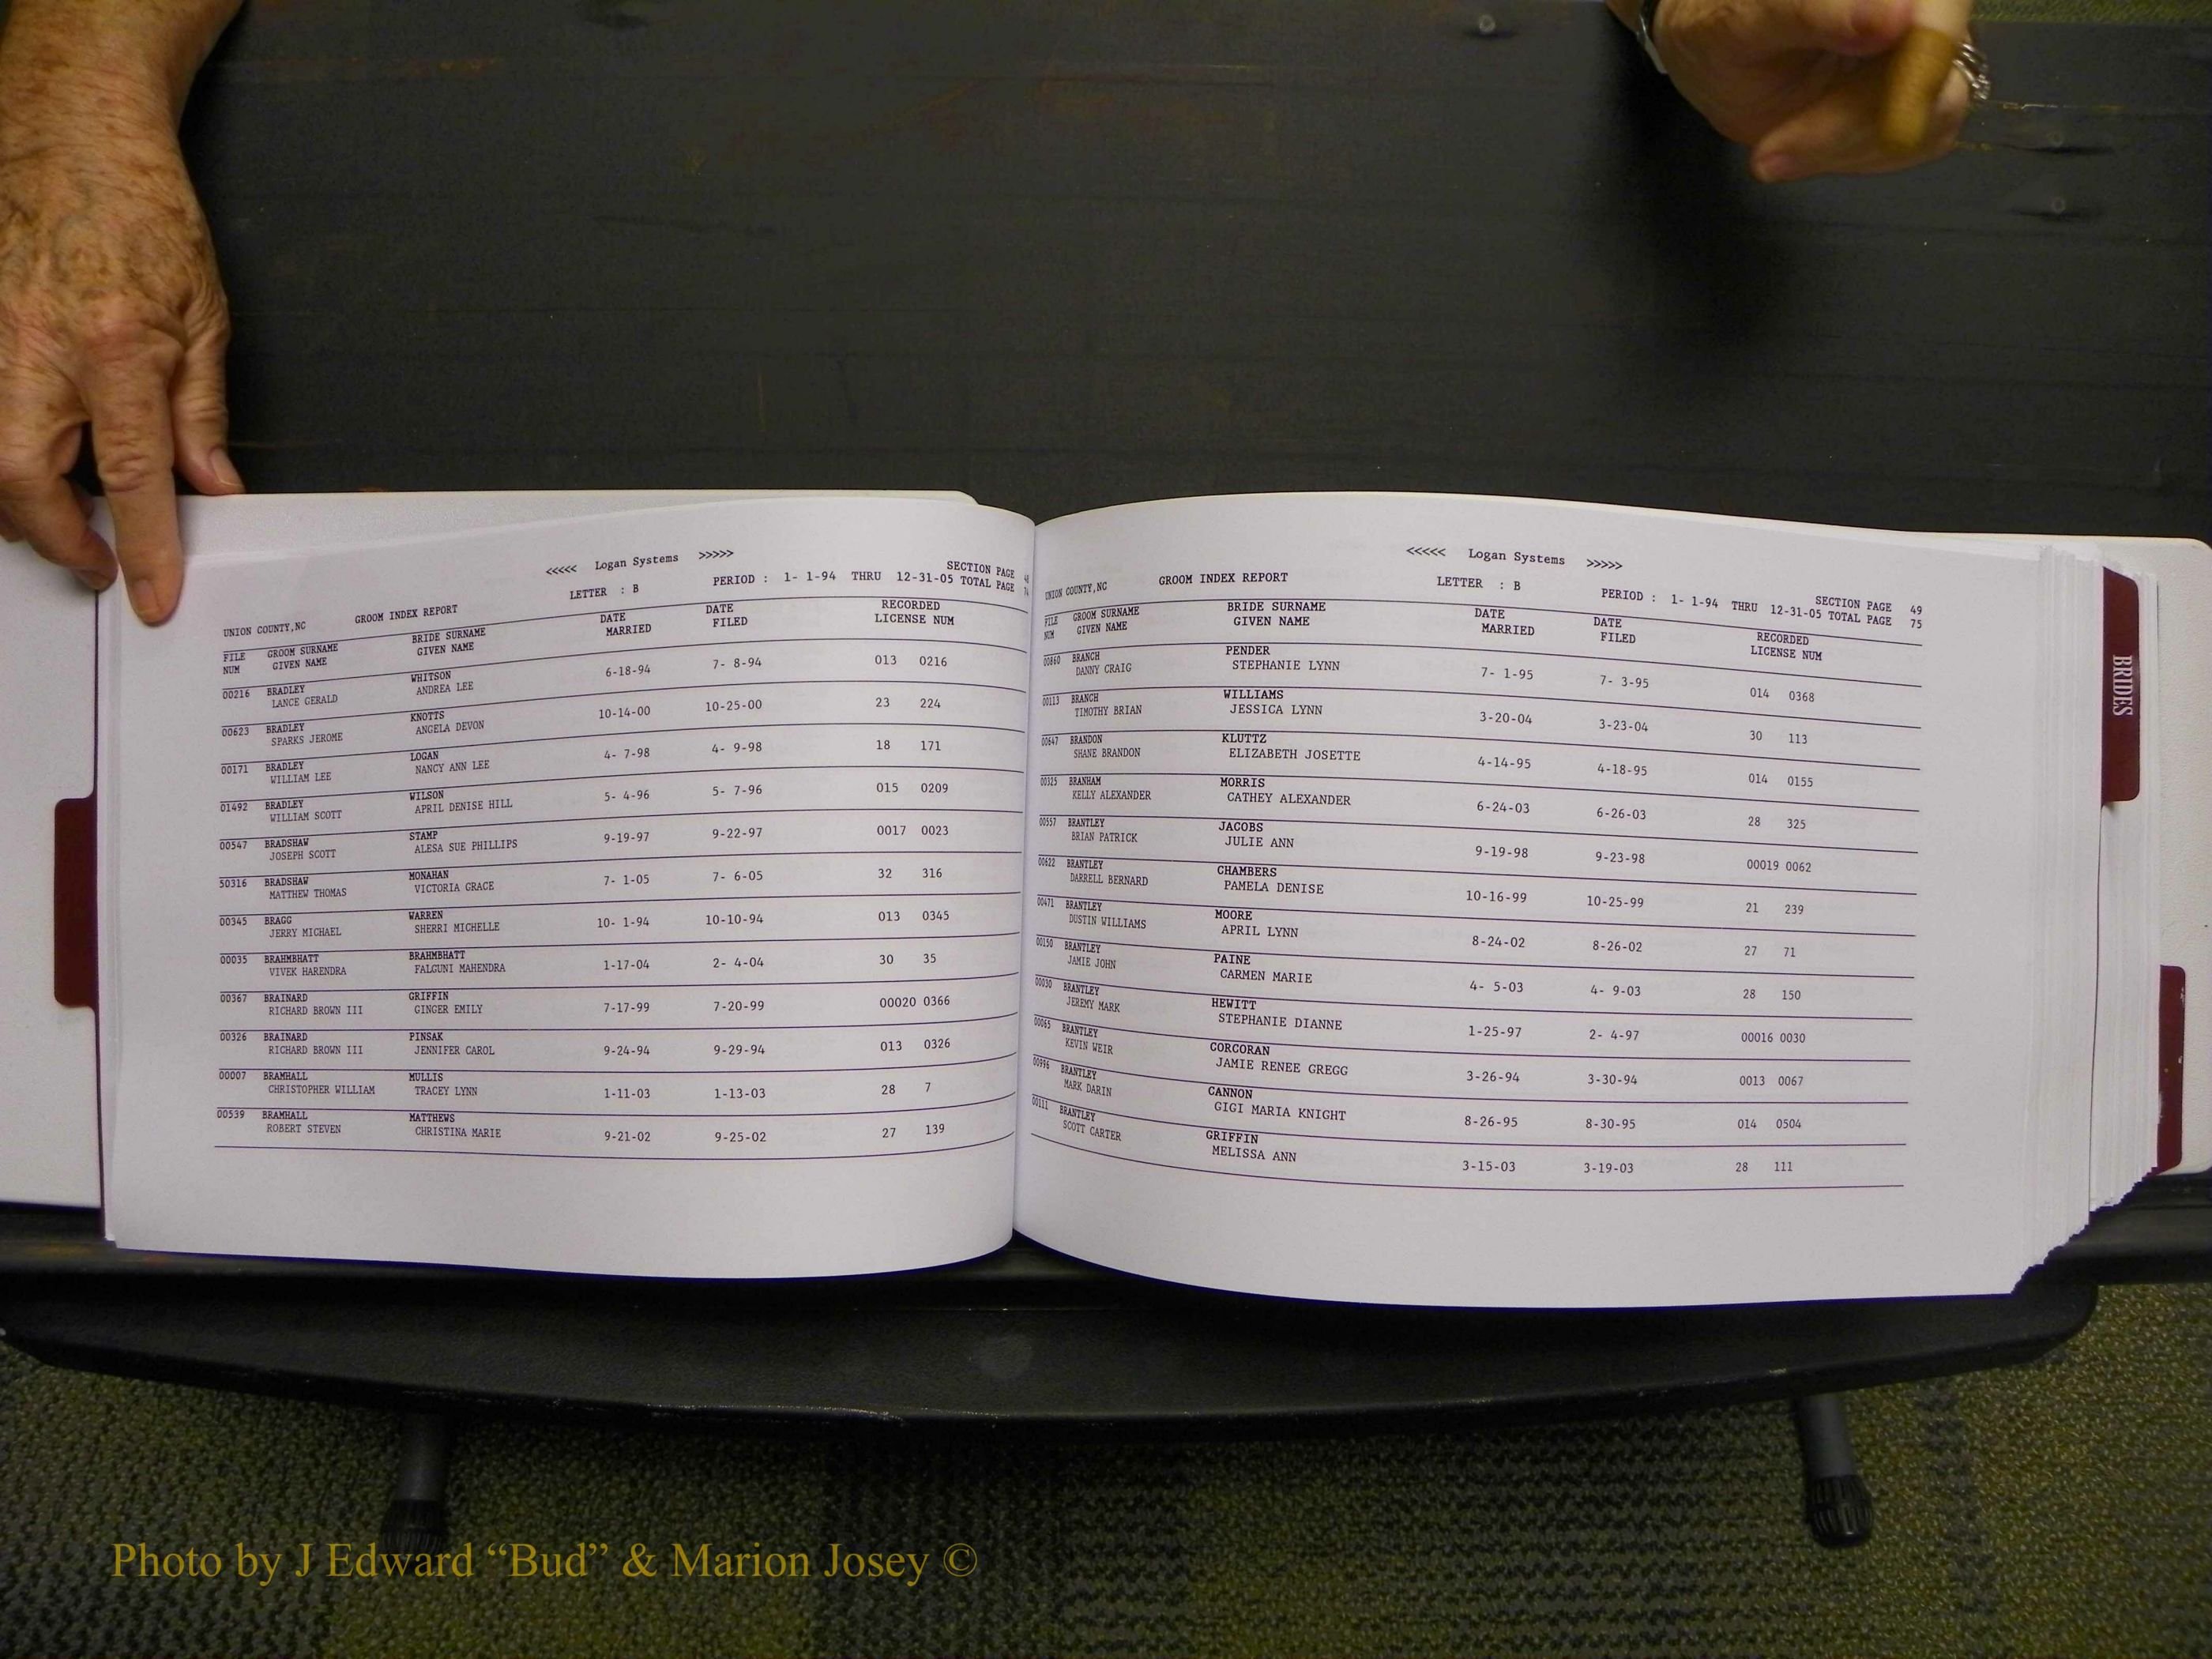 <<<<< Logan Systems >>>>>
SECTION PAGE 48
UNION COUNTY,NC GROOM INDEX REPORT LETTER : B PERIOD : 1- 1-94 THRU 12-31-05 TOTAL PAGE 74
FILE GROOM SURNAME BRIDE SURNAME DATE DATE RECORDED
NUM GIVEN NAME GIVEN NAME MARRIED FILED LICENSE NUM
00216 BRADLEY WHITSON 6-18-94 7- 8-94 013 0216
LANCE GERALD ANDREA LEE
00623 BRADLEY KNOTTS 10-14-00 10-25-00 23 224
SPARKS JEROME ANGELA DEVON
00171 BRADLEY LOGAN 4- 7-98 4- 9-98 18 171
WILLIAM LEE NANCY ANN LEE
01492 BRADLEY WILSON 5- 4-96 5- 7-96 015 0209
WILLIAM SCOTT APRIL DENISE HILL
00547 BRADSHAW STAMP 9-19-97 9-22-97 0017 0023
JOSEPH SCOTT ALESA SUE PHILLIPS
50316 BRADSHAW MONAHAN 7- 1-05 7- 6-05 32 316
MATTHEW THOMAS VICTORIA GRACE
00345 BRAGG WARREN 10- 1-94 10-10-94 013 0345
JERRY MICHAEL SHERRI MICHELLE
00035 BRAHMBHATT BRAHMBHATT 1-17-04 2- 4-04 30 35
VIVEK HARENDRA FALGUNI MAHENDRA
00367 BRAINARD GRIFFIN 7-17-99 7-20-99 00020 0366
RICHARD BROWN III GINGER EMILY
00326 BRAINARD PINSAK 9-24-94 9-29-94 013 0326
RICHARD BROWN III JENNIFER CAROL
00007 BRAMHALL MULLIS 1-11-03 1-13-03 28 7
CHRISTOPHER WILLIAM TRACEY LYNN
00539 BRAMHALL MATTHEWS 9-21-02 9-25-02 27 139
ROBERT STEVEN CHRISTINA MARIE
<<<<< Logan Systems >>>>>
SECTION PAGE 49
UNION COUNTY,NC GROOM INDEX REPORT LETTER : B PERIOD : 1- 1-94 THRU 12-31-05 TOTAL PAGE 75
FILE GROOM SURNAME BRIDE SURNAME DATE DATE RECORDED
NUM GIVEN NAME GIVEN NAME MARRIED FILED LICENSE NUM
00860 BRANCH PENDER 7- 1-95 7- 3-95 014 0368
DANNY CRAIG STEPHANIE LYNN
00113 BRANCH WILLIAMS 3-20-04 3-23-04 30 113
TIMOTHY BRIAN JESSICA LYNN
00647 BRANDON KLUTTZ 4-14-95 4-18-95 014 0155
SHANE BRANDON ELIZABETH JOSETTE
00325 BRANHAM MORRIS 6-24-03 6-26-03 28 325
KELLY ALEXANDER CATHEY ALEXANDER
00557 BRANTLEY JACOBS 9-19-98 9-23-98 00019 0062
BRIAN PATRICK JULIE ANN
00622 BRANTLEY CHAMBERS 10-16-99 10-25-99 21 239
DARRELL BERNARD PAMELA DENISE
00471 BRANTLEY MOORE 8-24-02 8-26-02 27 71
DUSTIN WILLIAMS APRIL LYNN
00150 BRANTLEY PAINE 4- 5-03 4- 9-03 28 150
JAMIE JOHN CARMEN MARIE
00030 BRANTLEY HEWITT 1-25-97 2- 4-97 00016 0030
JEREMY MARK STEPHANIE DIANNE
00065 BRANTLEY CORCORAN 3-26-94 3-30-94 0013 0067
KEVIN WEIR JAMIE RENEE GREGG
00996 BRANTLEY CANNON 8-26-95 8-30-95 014 0504
MARK DARIN GIGI MARIA KNIGHT
00111 BRANTLEY GRIFFIN 3-15-03 3-19-03 28 111
SCOTT CARTER MELISSA ANN
BRIDES
Photo by J Edward “Bud” & Marion Josey ©